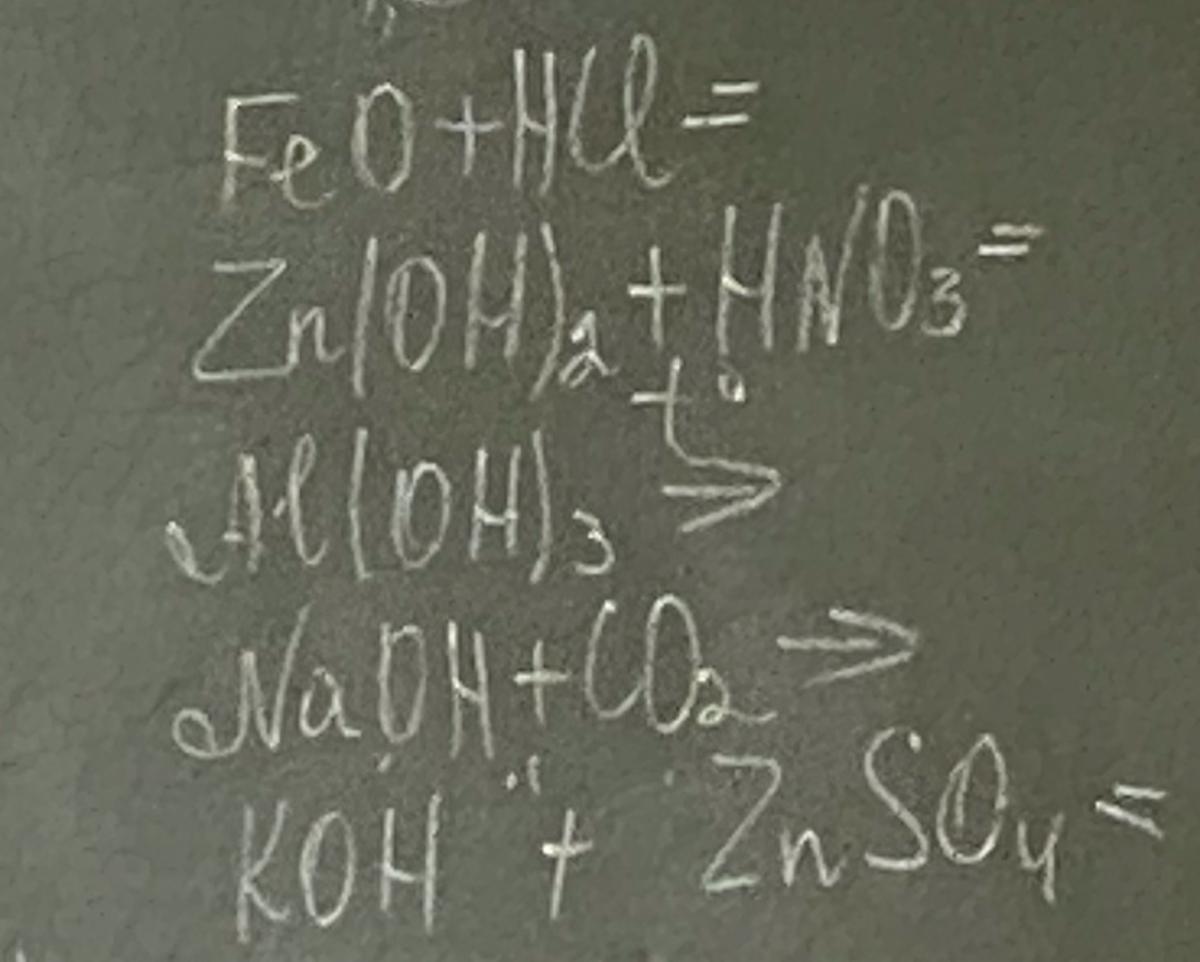 FeO + HCl =
Zn(OH)₂ + HNO₃ =
Al(OH)₃ t° →
NaOH + CO₂ →
KOH + ZnSO₄ =